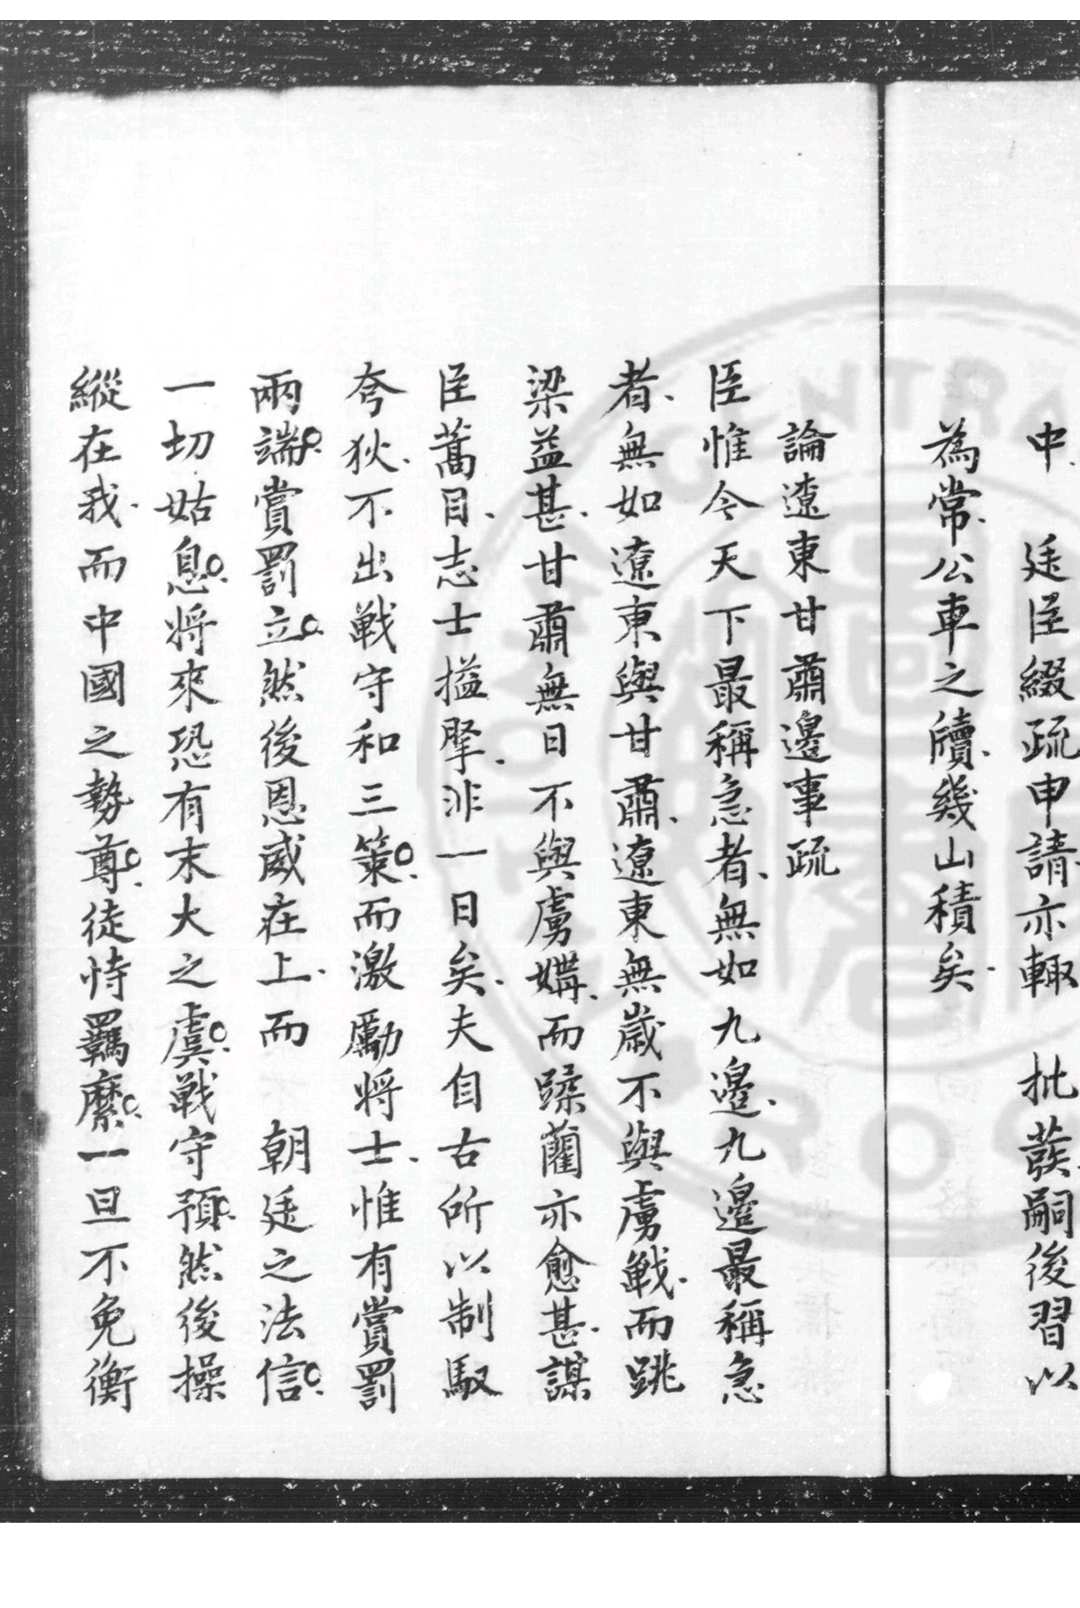 中　廷臣綴疏申請亦輙　批蒺嗣後習以
為常公車之牘幾山積矣
論遼東甘肅邊事疏
臣惟今天下最稱急者無如九邊九邊最稱急
者無如遼東與甘肅遼東無歲不與虜戰而跳
梁益甚甘肅無日不與虜媾而蹂藺亦愈甚謀
臣蒿目志士搤擥非一日矣夫自古所以制馭
夸狄不出戰守和三策而激勵将士惟有賞罰
兩端賞罰立然後恩威在上而　朝廷之法信
一切姑息将來恐有末大之虞戰守預然後操
縱在我而中國之勢尊徒恃羈縻一旦不免衡